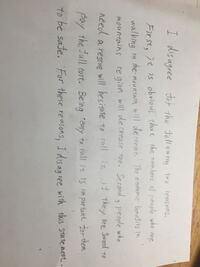 I disagree for the following two reasons.
First, it is obvious that the numbers of people who are
walking in the mountain will decrease. The economic benefits in
mountains region will decrease too. Second, people who
need a rescue will hesitate to call it if they are forced to
pay the full cost. Being easy to call it is important for them
to be safe. For these reasons, I disagree with this statement.